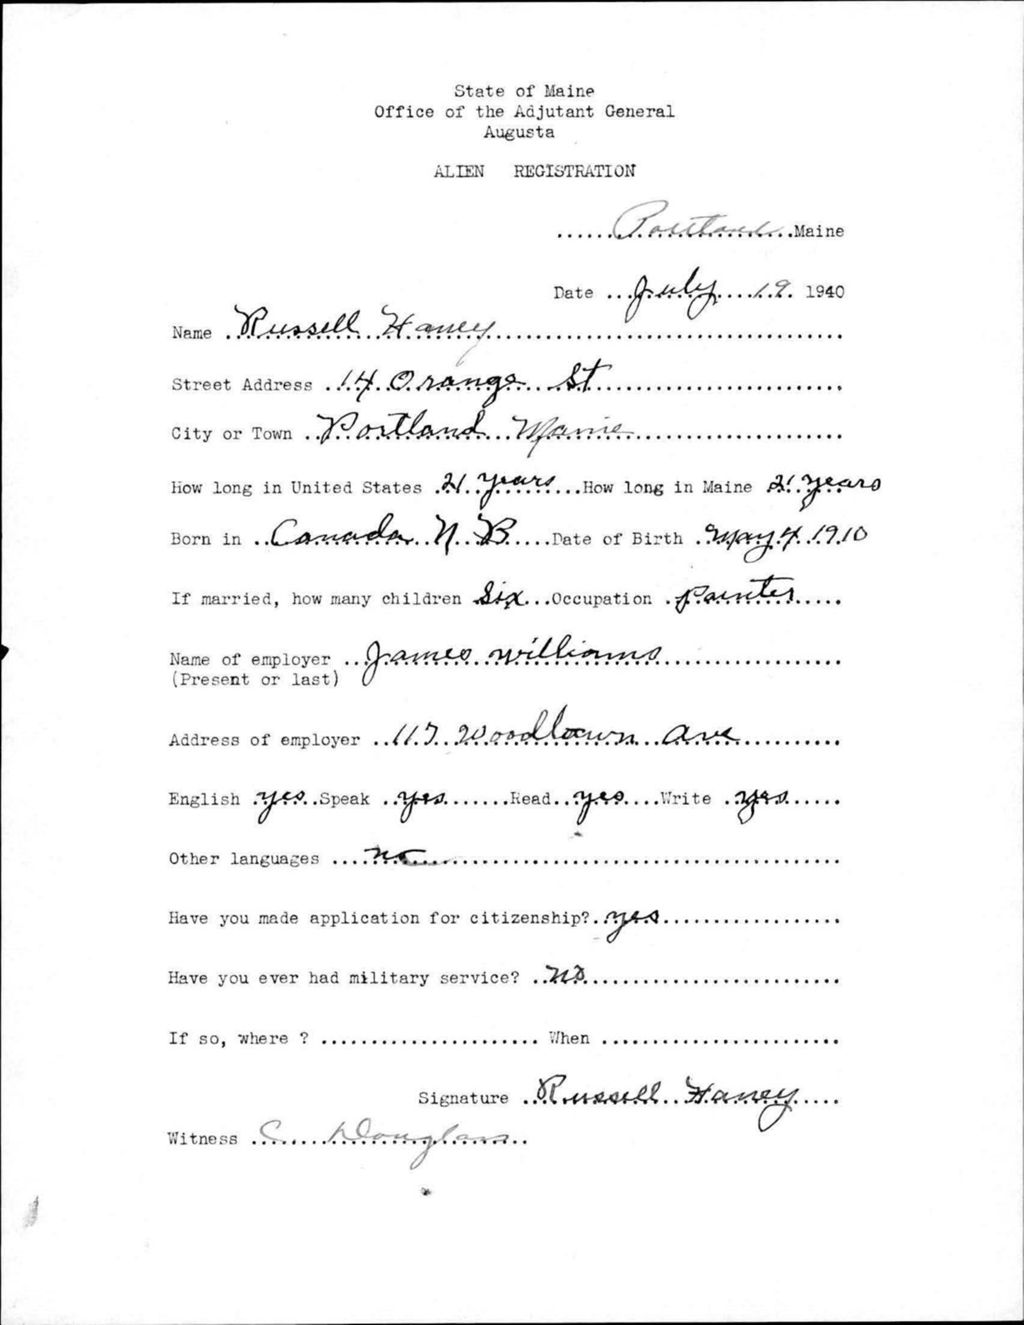 State of Maine
Office of the Adjutant General
Augusta
ALIEN REGISTRATION
Portland Maine
Date July 19 1940
Name Russell Haney
Street Address 14 Orange St
City or Town Portland Maine
How long in United States 21 years How long in Maine 21 years
Born in Canada N B Date of Birth May 4 1910
If married, how many children six Occupation painter
Name of employer James Williams
(Present or last)
Address of employer 117 Woodlawn Ave
English yes Speak yes Read yes Write yes
Other languages no
Have you made application for citizenship? yes
Have you ever had military service? no
If so, where ? When
Signature Russell Haney
Witness C Douglass